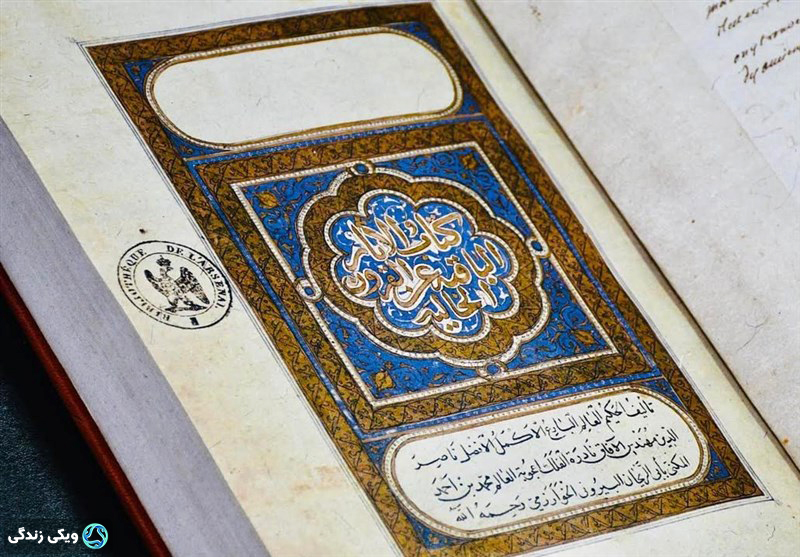 كتاب الآثار
الباقية عن القرون
الخالية
تأليف الحكيم الفاضل البارع الاكمل الافضل ناصر
الدين مهندس الآفاق نادرة الفلك اعجوبة العالم محمد بن احمد
المكنى بابي الريحان البيروني الخوارزمي رحمه الله
BIBLIOTHÈQUE DE L'ARSENAL
ویکی زندگی